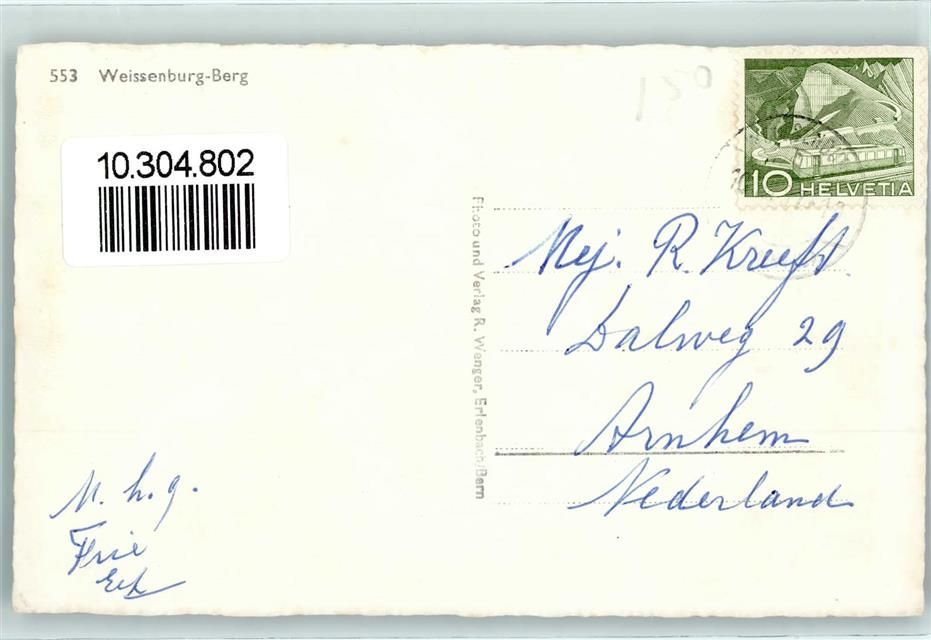 553 Weissenburg-Berg
10.304.802
150
10 HELVETIA
Photo und Verlag R. Wenger, Erlenbach/Bern
Mej. R. Kreeft
Dalweg 29
Arnhem
Nederland
M. h. g.